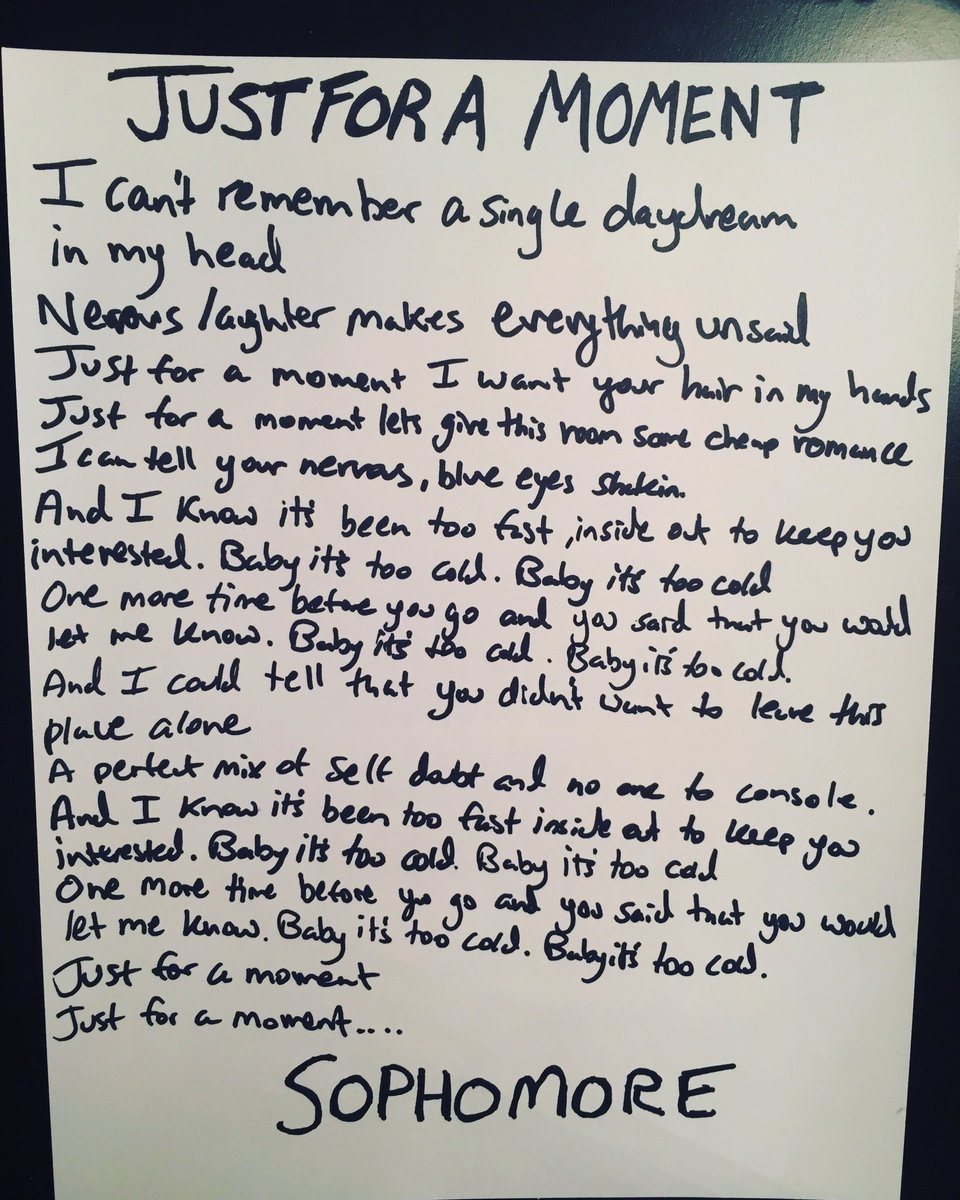 JUST FOR A MOMENT
I can't remember a single daydream
in my head
Nervous laughter makes everything unsaid
Just for a moment I want your hair in my hands
Just for a moment lets give this room some cheap romance
I can tell your nervous, blue eyes shakin.
And I know it's been too fast, inside out to keep you
interested. Baby it's too cold. Baby it's too cold
One more time before you go and you said that you would
let me know. Baby it's too cold. Baby it's too cold.
And I could tell that you didn't want to leave this
place alone
A perfect mix of self doubt and no one to console.
And I know it's been too fast inside out to keep you
interested. Baby it's too cold. Baby it's too cold
One more time before you go and you said that you would
let me know. Baby it's too cold. Baby it's too cold.
Just for a moment
Just for a moment....
SOPHOMORE